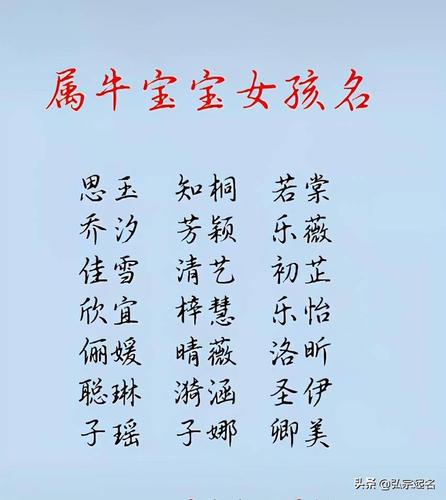 属牛宝宝女孩名
思玉 知桐 若棠
乔汐 芳颖 乐薇
佳雪 清艺 初芷
欣宜 梓慧 乐怡
俪媛 晴薇 洛昕
聪琳 漪涵 圣伊
子瑶 子娜 卿美
头条 @弘宗起名